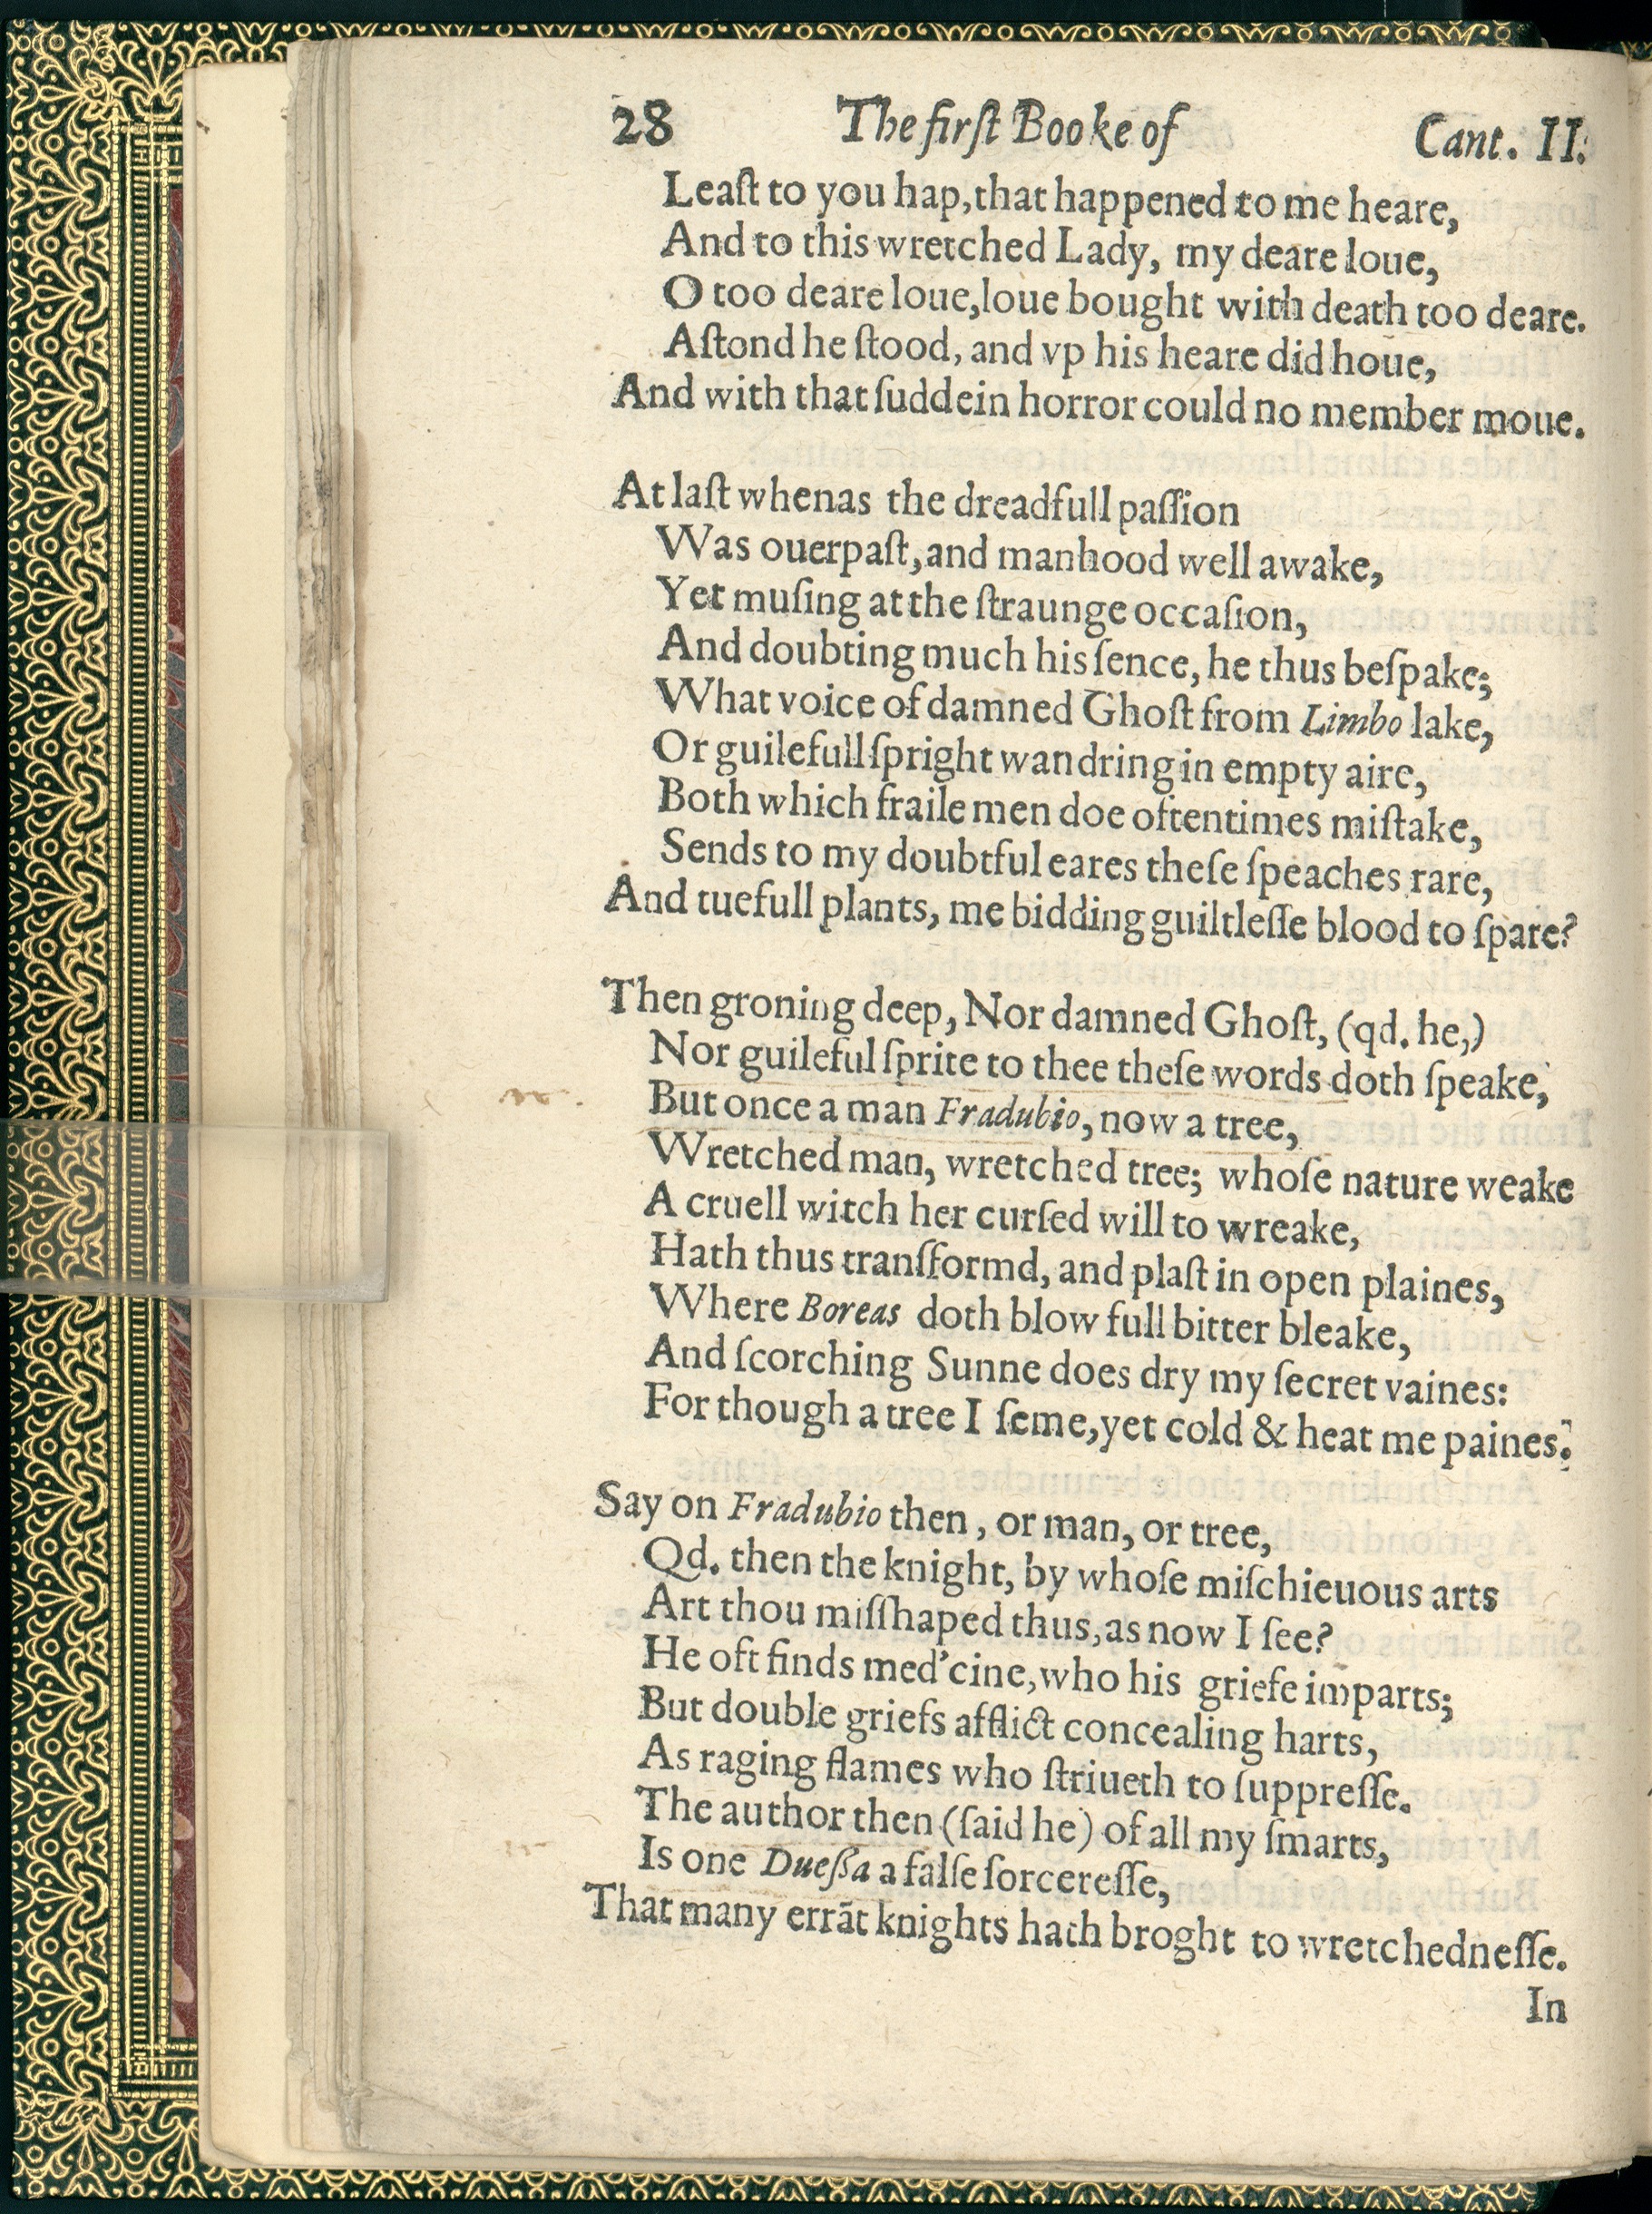 28 The firſt Booke of Cant. II.
Leaſt to you hap, that happened to me heare,
And to this wretched Lady, my deare loue,
O too deare loue, loue bought with death too deare.
Aſtond he ſtood, and vp his heare did houe,
And with that ſuddein horror could no member moue.
At laſt whenas the dreadfull paſſion
Was ouerpaſt, and manhood well awake,
Yet muſing at the ſtraunge occaſion,
And doubting much his ſence, he thus beſpake;
What voice of damned Ghoſt from Limbo lake,
Or guilefull ſpright wandring in empty aire,
Both which fraile men doe oftentimes miſtake,
Sends to my doubtful eares theſe ſpeaches rare,
And tuefull plants, me bidding guiltleſſe blood to ſpare?
Then groning deep, Nor damned Ghoſt, (qd. he,)
Nor guileful ſprite to thee theſe words doth ſpeake,
But once a man Fradubio, now a tree,
Wretched man, wretched tree; whoſe nature weake
A cruell witch her curſed will to wreake,
Hath thus tranſformd, and plaſt in open plaines,
Where Boreas doth blow full bitter bleake,
And ſcorching Sunne does dry my ſecret vaines:
For though a tree I ſeme, yet cold & heat me paines.
Say on Fradubio then, or man, or tree,
Qd. then the knight, by whoſe miſchieuous arts
Art thou miſſhaped thus, as now I ſee?
He oft finds med'cine, who his griefe imparts;
But double griefs afflict concealing harts,
As raging flames who ſtriueth to ſuppreſſe.
The author then (ſaid he) of all my ſmarts,
Is one Dueßa a falſe ſorcereſſe,
That many errāt knights hath broght to wretchedneſſe.
In